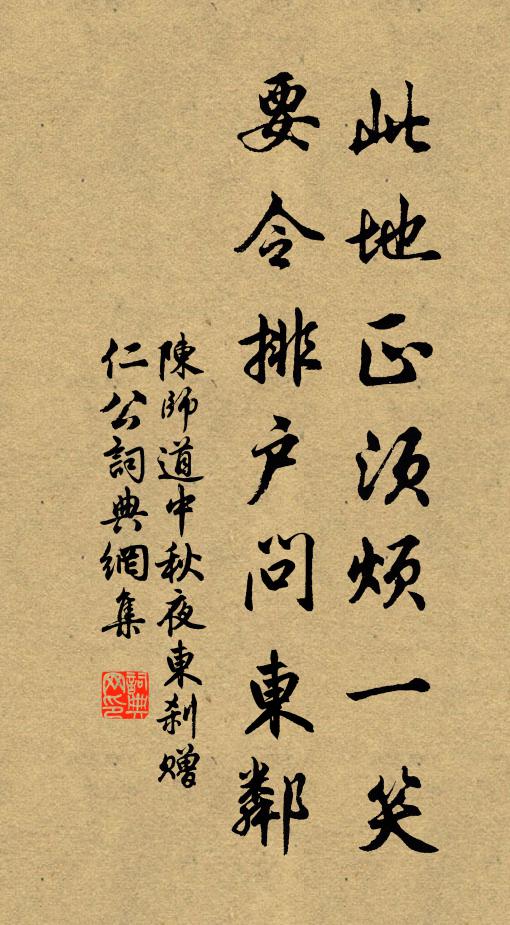 此地正須煩一笑
要令排户問東鄰
陳師道中秋夜東刹贈
仁公詞典網集
詞典網印